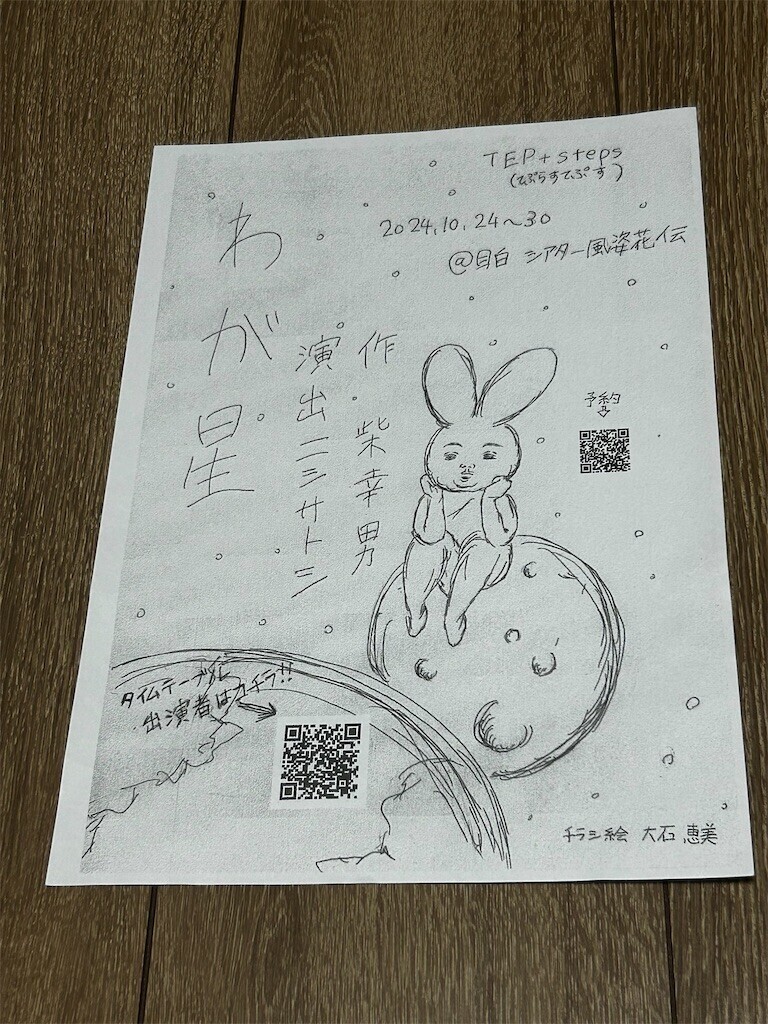 TEP+steps
(てぷらすてぷす)
2024.10.24〜30
@目白 シアター風姿花伝
わが星
作・柴幸男
演出 ニシサトシ
予約
タイムテーブルと
出演者はコチラ!!
チラシ絵 大石 恵美